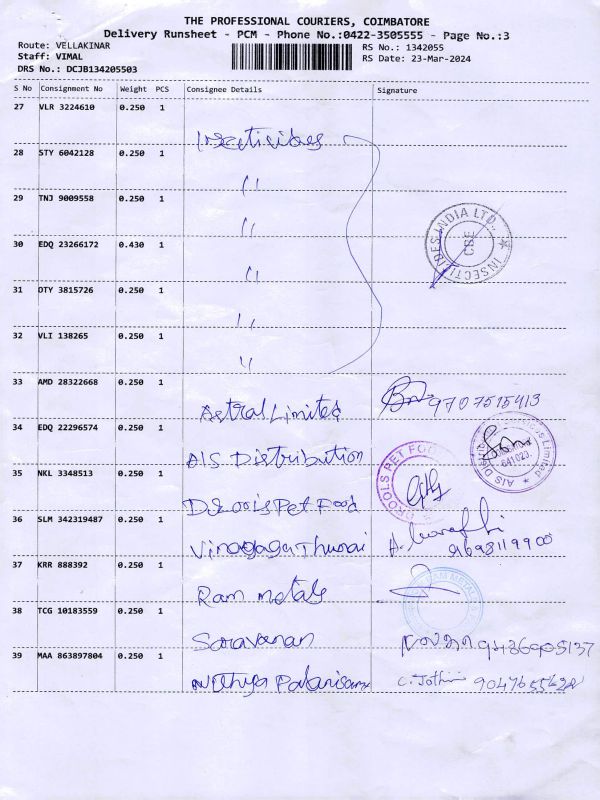 THE PROFESSIONAL COURIERS, COIMBATORE
Delivery Runsheet - PCM - Phone No.:0422-3505555 - Page No.:3
Route: VELLAKINAR
RS No.: 1342055
Staff: VIMAL
RS Date: 23-Mar-2024
DRS No.: DCJB134205503
S No Consignment No Weight PCS Consignee Details Signature
27 VLR 3224610 0.250 1
Insecticides
28 STY 6042128 0.250 1
"
29 TNJ 9009558 0.250 1
"
INSECTICIDES INDIA LTD. ★
CBE
30 EDQ 23266172 0.430 1
"
31 OTY 3815726 0.250 1
"
32 VLI 138265 0.250 1
"
33 AMD 28322668 0.250 1
Astral Limited 9707515413
34 EDQ 22296574 0.250 1
AIS Distribution
641029.
35 NKL 3348513 0.250 1
DROOLS PET FOO
Drools Pet Food
36 SLM 342319487 0.250 1
Vinayaga Thurai
37 KRR 888392 0.250 1
Ram metals
RAM METAL
38 TCG 10183559 0.250 1
Saravanan
39 MAA 863897804 0.250 1
Nithya Palanisamy C. Jothi